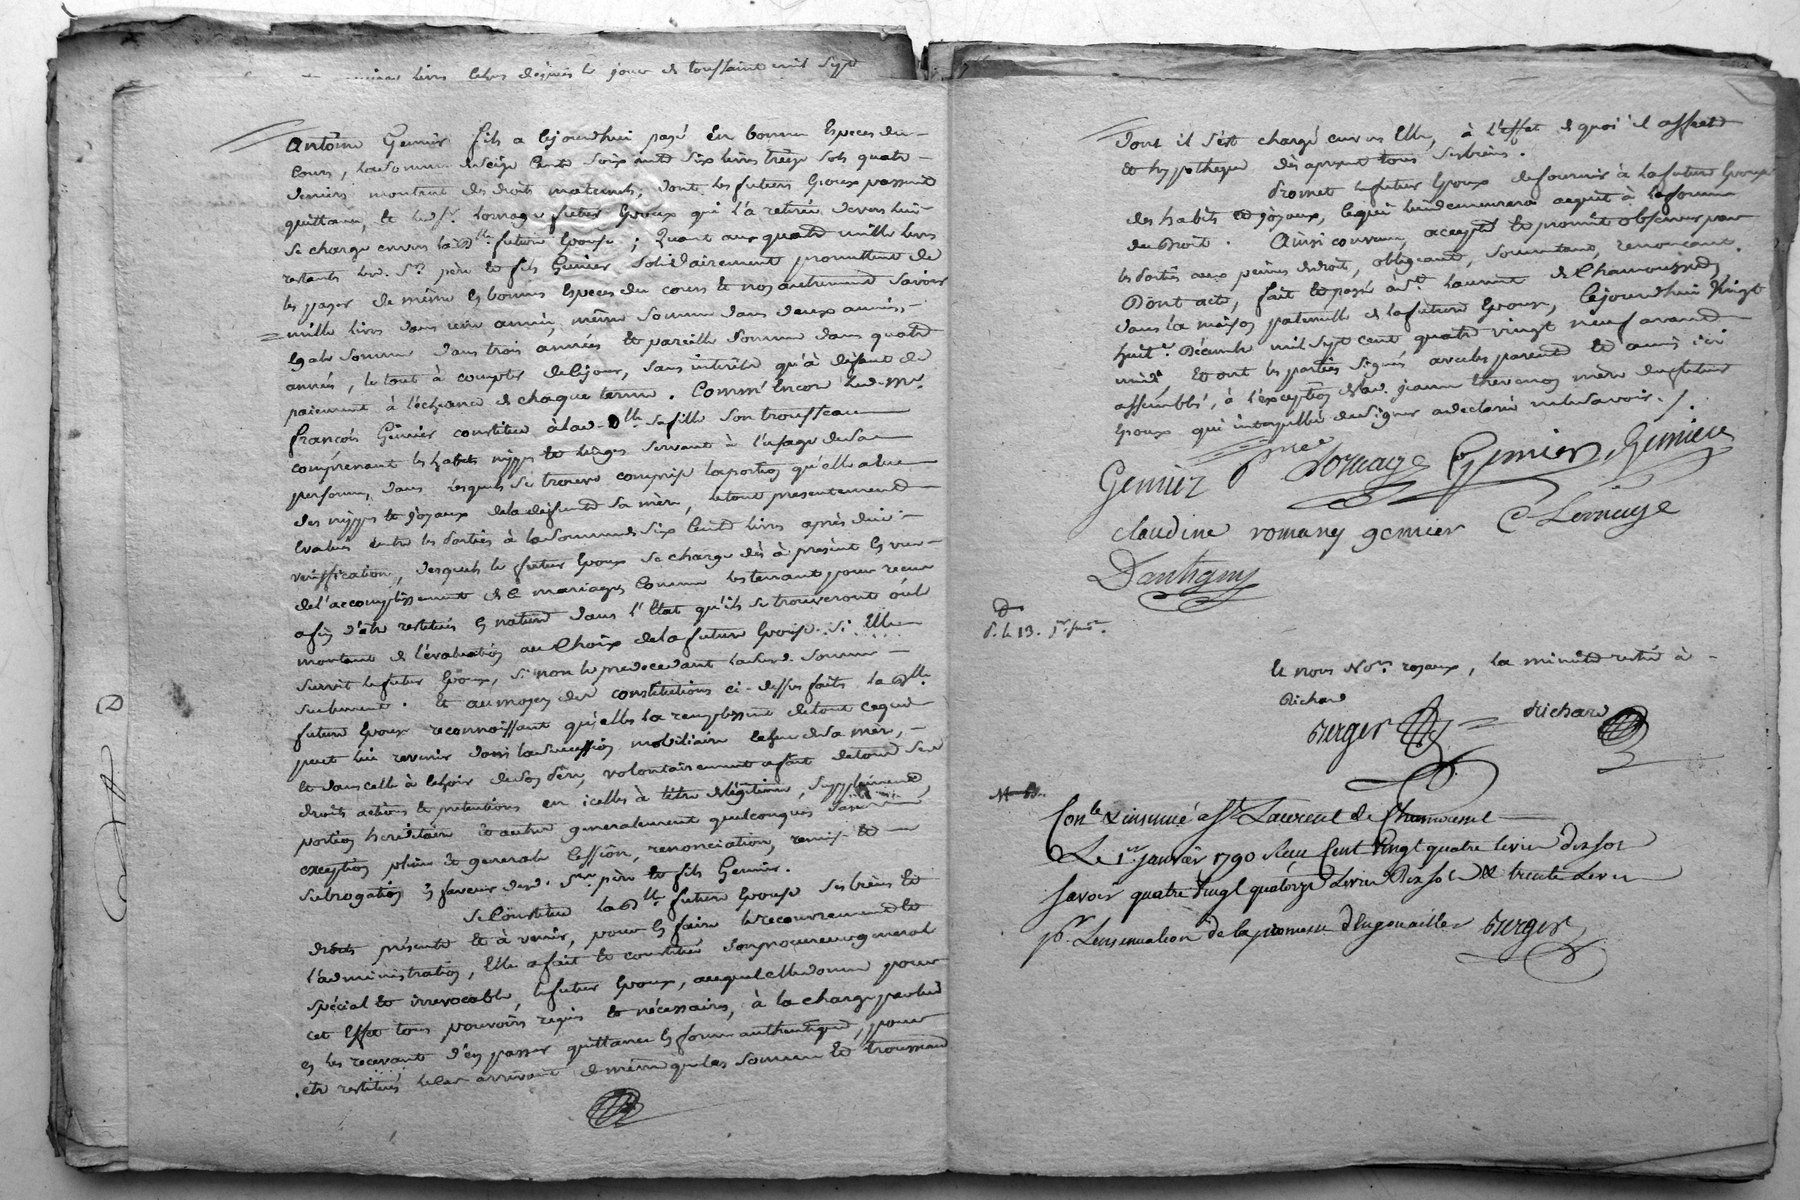 livres libres depuis le jour de toussaint mil sept
Antoine Gemier fils a cejourdhui payé en bonnes Especes du
Cours, la somme de seize Cents soixante six livres treize sols quatre
deniers montant des droits maternels, dont les futurs Epoux passent
quittance, et led. Sr. Lornage futur Epoux qui l'a retirée devers lui
se charge envers la dlle. future Epouse ; Quant aux quatre mille livres
restants lesd. Srs. père et fils Gemier solidairement promettent de
les payer de même en bonnes Especes du cours et non autrement savoir
mille livres dans une année, même somme dans deux années,
Egale somme dans trois années et pareille somme dans quatre
années, le tout à compter de cejour, sans interêts qu'à defaut de
paiement à l'échéance de chaque terme. Comm' Encore led. Mr.
françois Gemier constitue à lad. Dlle sa fille son trousseau
comprenant les habits nippes et linges servant à l'usage de sa
personne, dans lesquels se trouve comprise la portion qu'elle a eue
des nippes et joyaux de la defunte sa mère, le tout presentement
Evalué entre les parties à la somme de six Cents livres après due
verification, desquels le futur Epoux se charge dès à présent en vue
de l'accomplissement de ce mariage, Comme les tenant pour reçus
afin d'être restitués en nature dans l'Etat qu'ils se trouveront ou le
montant de l'évaluation au Choix de la future Epouse si Elle
survit le futur Epoux, sinon le predecedant lasusd. somme
seulement. Et au moyen des constitutions ci-dessus faites la dlle.
future Epouse reconnoissant qu'elles la remplissent de tout ce qui
peut lui revenir dans la succession mobiliaire de feue sa mère,
et dans celle à echoir de son père, volontairement a fait de tous ses
droits actions et pretentions en icelles à titre de légitime, supplément,
portion hereditaire et autres generalement quelconques sans
exception pleine et generale Cession, renonciation, remise et
subrogation en faveur desd. Srs. père et fils Gemier.
Se Constitue la dlle. future Epouse ses biens et
droits présents et à venir, pour en faire le recouvrement et
l'administration, Elle a fait et constitué son procureur general
spécial et irrevocable, le futur Epoux, auquel elle donne pour
cet Effet tous pouvoirs requis et nécessaires, à la charge par lui
en les recevant d'en passer quittances en forme authentique, pour
être restitués le Cas arrivant de même que les sommes et trousseau
dont il s'est chargé envers Elle, à l'Effet de quoi il affecte
et hypotheque dès apresent tous ses biens.
Promet le futur Epoux de fournir à la future Epouse
des habits et joyaux, lequels lui demeureront acquis à la forme
du Droit. Ainsi convenu, accepté et promis observer par
les Parties aux peines de droit, obligeant, soumettant, renonçant.
Dont acte, fait et passé à St. Laurent de Chamousset
dans la maison paternelle de la future Epouse, Cejourdhui vingt
huite. Décembre mil sept cent quatre vingt neuf avant
midi Et ont les parties signés avec les parents et amis ici
assemblés, à l'exception de lad. jeanne thevenon mère du futur
Epoux qui interpellée de signer a declaré ne le savoir./.
Gemier Lornage Gemier, Gemiere
claudine romany gemier C Lornage
Dantigny
Et nous Nores. royaux, la minute restée à
Richard
Berger Richard
Conlé & insinué à St. Laurent de Chamousset
Le 1er janvier 1790 Reçu Cent vingt quatre livres dix sols
Savoir quatre vingt quatorze Livres Dix sols & trente Livres
pr. Linsinuation de la promesse d'Engenailler Berger